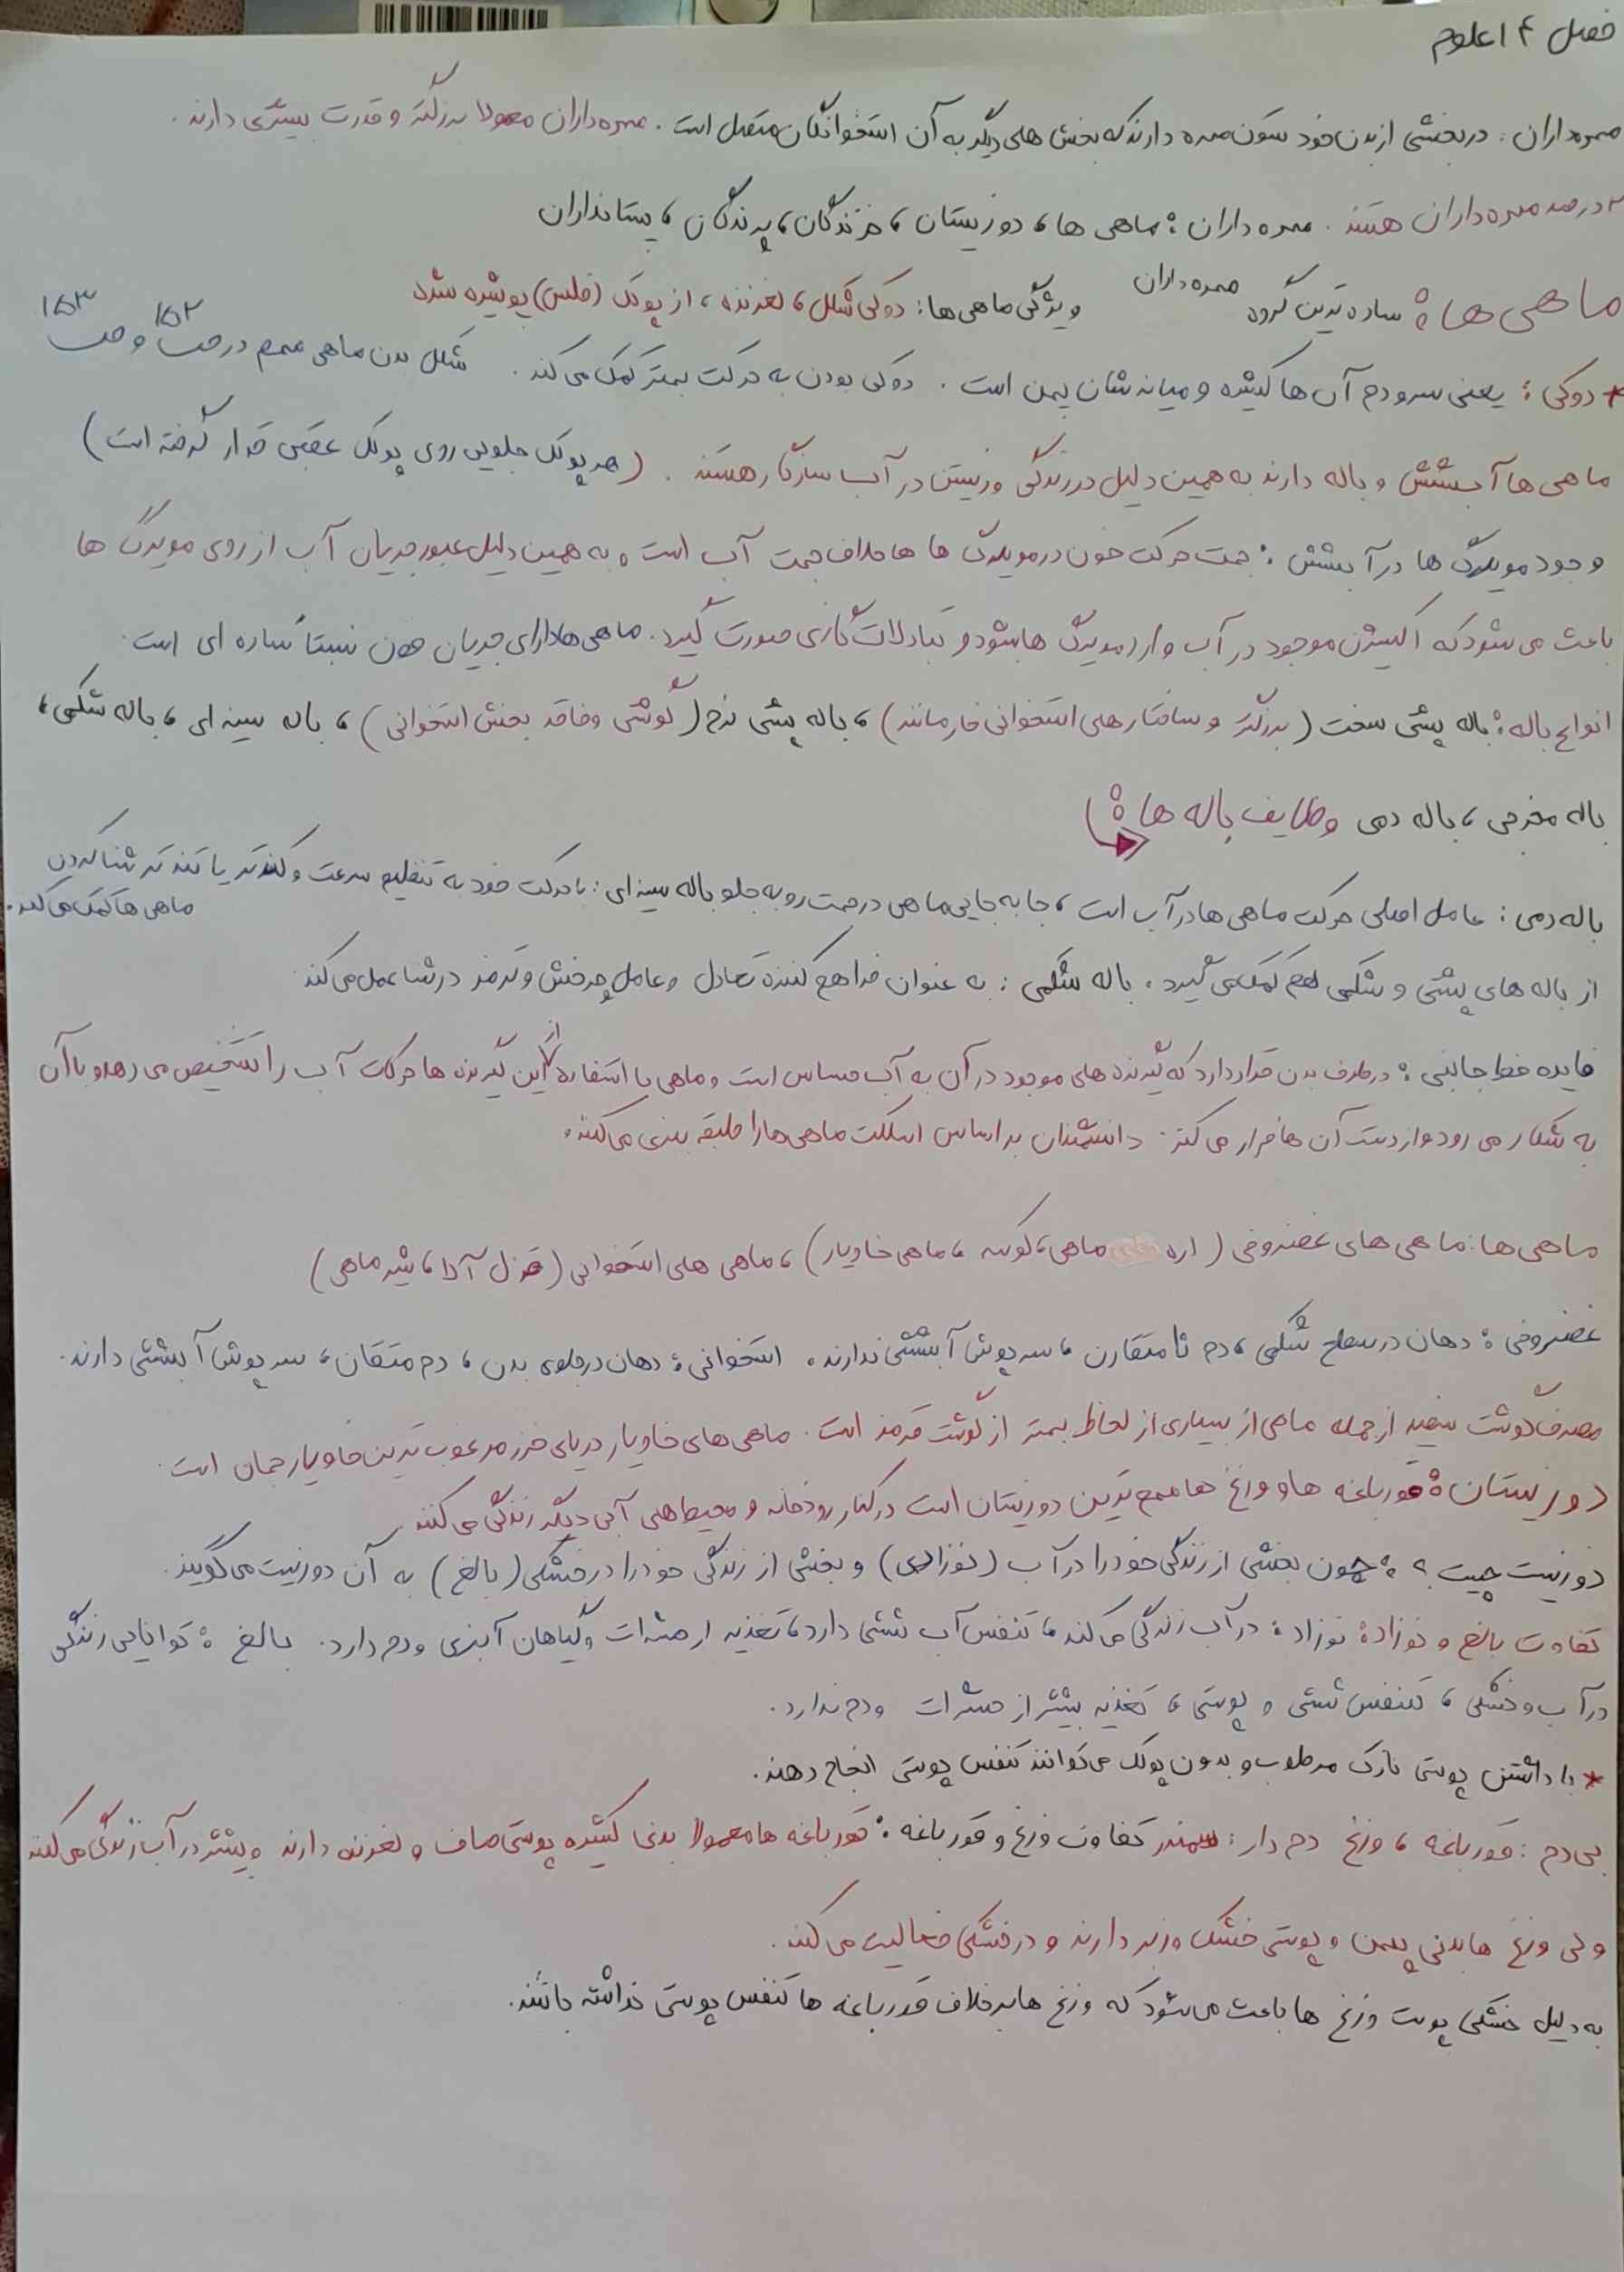 فصل ۱۴ علوم
مهره‌داران : در بخشی از بدن خود ستون مهره دارند که بخش های دیگر به آن استخوانگان متصل است . مهره‌داران معمولا بزرگتر و قدرت بیشتری دارند .
درصد مهره داران هستند . مهره داران : ماهی ها ، دوزیستان ، خزندگان ، پرندگان ، پستانداران
ماهی ها : ساده ترین گروه مهره داران ویژگی ماهی ها : دوکی شکل ، لغزنده ، از پولک (فلس) پوشیده شده
* دوکی : یعنی سر و دم آن ها کشیده و میانه شان پهن است . دوکی بودن به حرکت بهتر کمک می کند . شکل بدن ماهی مهم در ص ۱۵۲ و ص ۱۵۳
ماهی ها آبشش و باله دارند به همین دلیل در زندگی و زیستن در آب سازگار هستند . (هر پولک جلویی روی پولک عقبی قرار گرفته است)
وجود مویرگ ها در آبشش : جهت حرکت خون در مویرگ ها خلاف جهت آب است و به همین دلیل عبور جریان آب از روی مویرگ ها
باعث می شود که اکسیژن موجود در آب وارد مویرگ ها بشود و تبادلات گازی صورت گیرد . ماهی ها دارای جریان خون نسبتاً ساده ای است .
انواع باله : باله پشتی سخت (بزرگتر و ساختارهای استخوانی خار مانند) ، باله پشتی نرم (گوشتی و فاقد بخش استخوانی) ، باله سینه ای ، باله شکمی ،
باله مخرجی ، باله دمی وظایف باله ها :
باله دمی : عامل اصلی حرکت ماهی ها در آب است ، جا به جایی ماهی در جهت رو به جلو باله سینه ای : با حرکت خود به تنظیم سرعت و کندتر یا تندتر شنا کردن ماهی ها کمک می کند .
از باله های پشتی و شکمی هم کمک می گیرد . باله شکمی : به عنوان فراهم کننده تعادل و عامل چرخش و ترمز در شنا عمل می کند
فایده خط جانبی : در طرف بدن قرار دارد که گیرنده های موجود در آن به آب حساس است و ماهی با استفاده از این گیرنده ها حرکات آب را تشخیص می دهد و با آن
به شکار می رود و از دست آن ها فرار می کند . دانشمندان بر اساس اسکلت ماهی ها را طبقه بندی می کنند .
ماهی ها : ماهی های غضروفی (اره ماهی ، کوسه ، ماهی خاویار) ، ماهی های استخوانی (قزل آلا ، شیر ماهی)
غضروفی : دهان در سطح شکمی ، دم نامتقارن ، سرپوش آبششی ندارند . استخوانی : دهان در جلوی بدن ، دم متقان ، سرپوش آبششی دارند .
مصرف گوشت سفید از جمله ماهی از بسیاری از لحاظ بهتر از گوشت قرمز است . ماهی های خاویار دریای خزر مرغوب ترین خاویار جهان است .
دوزیستان : قورباغه ها و وزغ ها مهم ترین دوزیستان است در کنار رودخانه و محیط های آبی دیگر زندگی می کنند
دوزیست چیست ؟ : چون بخشی از زندگی خود را در آب (نوزادی) و بخشی از زندگی خود را در خشکی (بالغ) به آن دوزیست می گویند .
تفاوت بالغ و نوزاد : نوزاد : در آب زندگی می کند ، تنفس آب ششی دارد ، تغذیه از حشرات و گیاهان آبزی و دم دارد . بالغ : توانایی زندگی
در آب و خشکی ، تنفس ششی و پوستی ، تغذیه بیشتر از حشرات و دم ندارد .
* با داشتن پوستی نازک مرطوب و بدون پولک می توانند تنفس پوستی انجام دهند .
بی دم : قورباغه ، وزغ دم دار : سمندر تفاوت وزغ و قورباغه : قورباغه ها معمولا بدنی کشیده پوستی صاف و لغزنده دارند و بیشتر در آب زندگی می کنند
ولی وزغ ها بدنی پهن و پوستی خشک و زبر دارند و در خشکی فعالیت می کنند .
به دلیل خشکی پوست وزغ ها باعث می شود که وزغ ها برخلاف قورباغه ها تنفس پوستی نداشته باشند .